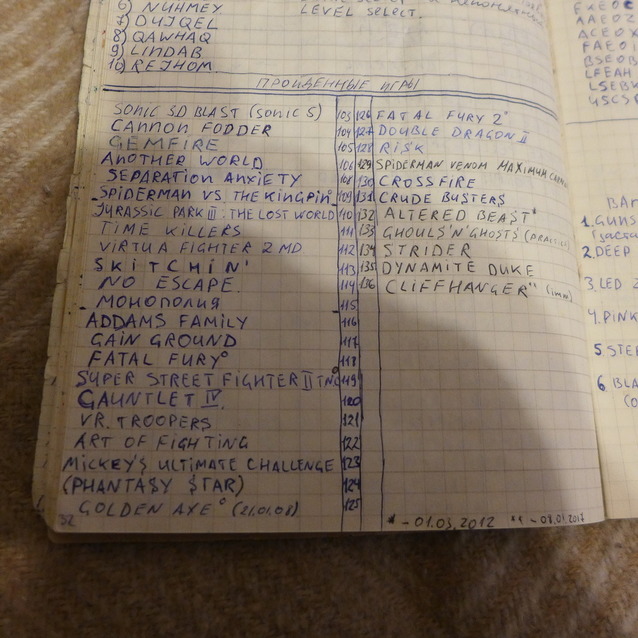 6) NUHMEY
7) DUJQEL
8) QAWHAQ
9) LINDAB
10) REJHOM
LEVEL SELECT.
ПРОЙДЕННЫЕ ИГРЫ
SONIC 3D BLAST (SONIC 5)
CANNON FODDER 103
GEMFIRE 104
ANOTHER WORLD 105
SEPARATION ANXIETY 106
SPIDERMAN VS. THE KINGPIN 108
JURASSIC PARK II: THE LOST WORLD 109
TIME KILLERS 110
VIRTUA FIGHTER 2 MD 111
SKITCHIN' 112
NO ESCAPE. 113
МОНОПОЛИЯ 114
ADDAMS FAMILY 115
GAIN GROUND 116
FATAL FURY° 117
SUPER STREET FIGHTER II TNC 118
GAUNTLET IV. 119
V.R. TROOPERS 120
ART OF FIGHTING 121
MICKEY'S ULTIMATE CHALLENGE 122
(PHANTASY STAR) 123
GOLDEN AXE° (21.01.08) 124
125
126 FATAL FURY 2°
127 DOUBLE DRAGON II
128 RISK
129 SPIDERMAN VENOM MAXIMUM
130 CROSSFIRE
131 CRUDE BUSTERS
132 ALTERED BEAST*
133 GHOULS'N'GHOSTS
134 STRIDER
135 DYNAMITE DUKE
136 CLIFFHANGER**
32
* - 01.03.2012 ** - 08.01.2017
1. GUNS
2. DEEP
3. LED
4. PINK
5. STE
6. BLA